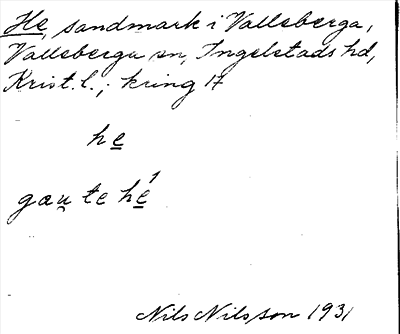 He, sandmark i Valleberga,
Valleberga sn, Ingelstads hd,
Krist. l.; kring 17
he
gau te he
Nils Nilsson 1931